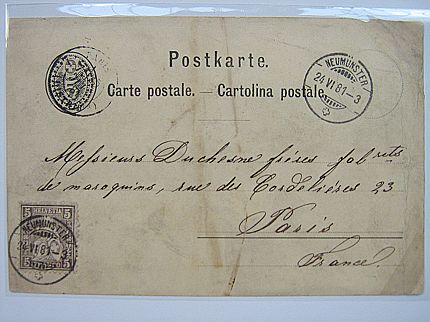 Postkarte.
Carte postale. — Cartolina postale.
NEUMÜNSTER
24 VI 81 - 3
Messieurs Duchesne frères fabrcts
de maroquins, rue des Cordelières 23
Paris
France.
5 HELVETIA 5
NEUMÜNSTER
24 VI 81 - 3
5 5